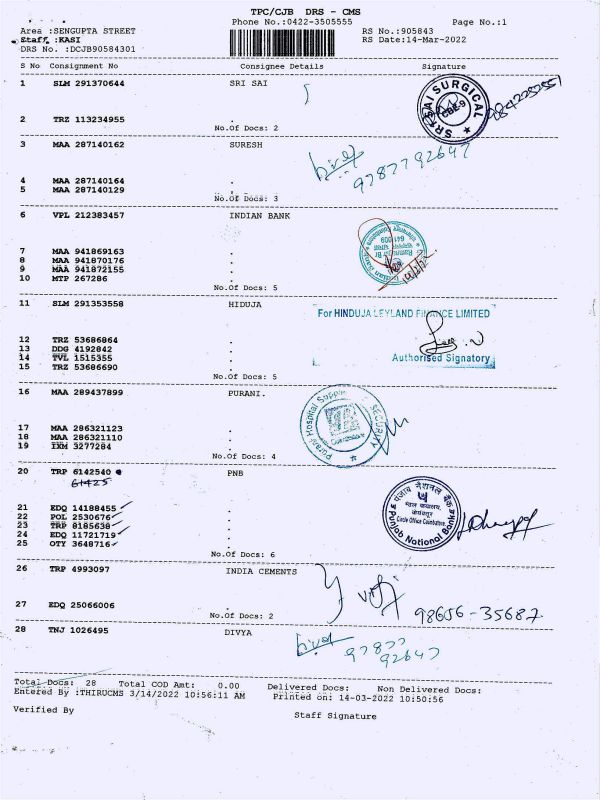 TPC/CJB DRS - CMS
Phone No.:0422-3505555 Page No.:1
Area :SENGUPTA STREET RS No.:905843
Staff :KASI RS Date:14-Mar-2022
DRS No. :DCJB90584301
S No Consignment No Consignee Details Signature
1 SLM 291370644 SRI SAI
SRI SAI SURGICAL
CBE-9
2 TRZ 113234955 .
No.Of Docs: 2
3 MAA 287140162 SURESH
9787792647
4 MAA 287140164 .
5 MAA 287140129 .
No.Of Docs: 3
6 VPL 212383457 INDIAN BANK
7 MAA 941869163 .
8 MAA 941870176 .
9 MAA 941872155 .
10 MTP 267286 .
No.Of Docs: 5
11 SLM 291353558 HIDUJA
For HINDUJA LEYLAND FINANCE LIMITED
12 TRZ 53686864 .
13 DDG 4192842 .
14 TVL 1515355 .
15 TRZ 53686690 .
Authorised Signatory
No.Of Docs: 5
16 MAA 289437899 PURANI.
Purani Hospital Supplies
SECURITY
Coimbatore
17 MAA 286321123 .
18 MAA 286321110 .
19 IXM 3277284 .
No.Of Docs: 4
20 TRP 6142540 PNB
61425
पंजाब नैशनल बैंक
Circle Office Coimbatore
Punjab National Bank
21 EDQ 14188455 .
22 POL 2530676 .
23 TRP 8185638 .
24 EDQ 11721719 .
25 OTY 3648716 .
No.Of Docs: 6
26 TRP 4993097 INDIA CEMENTS
98656-35687
27 EDQ 25066006 .
No.Of Docs: 2
28 TNJ 1026495 DIVYA
97877
92647
Total Docs: 28 Total COD Amt: 0.00 Delivered Docs: Non Delivered Docs:
Entered By :THIRUCMS 3/14/2022 10:56:11 AM Printed on: 14-03-2022 10:50:56
Verified By Staff Signature